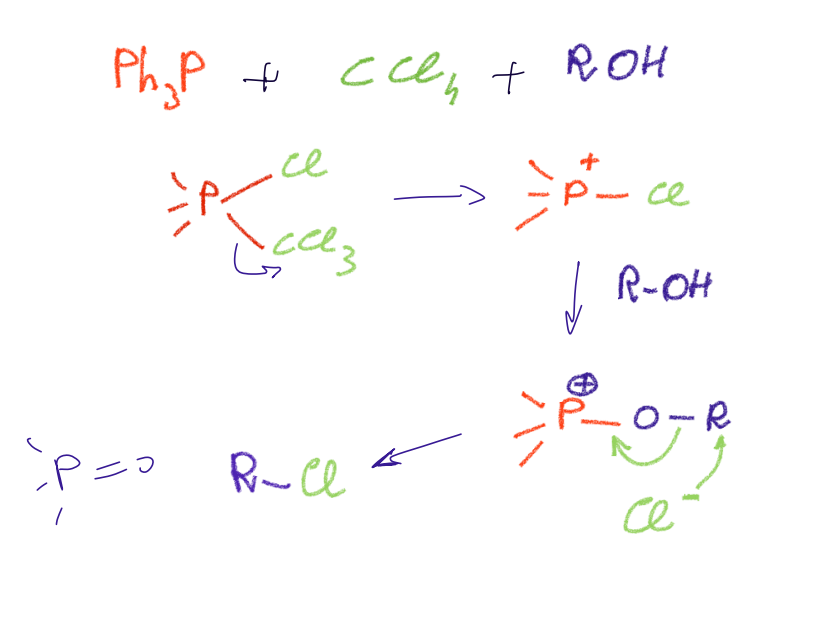 Ph₃P + CCl₄ + ROH
P Cl CCl₃ → P⁺ – Cl
R–OH
P⊕ – O – R
P=O R–Cl
Cl⁻